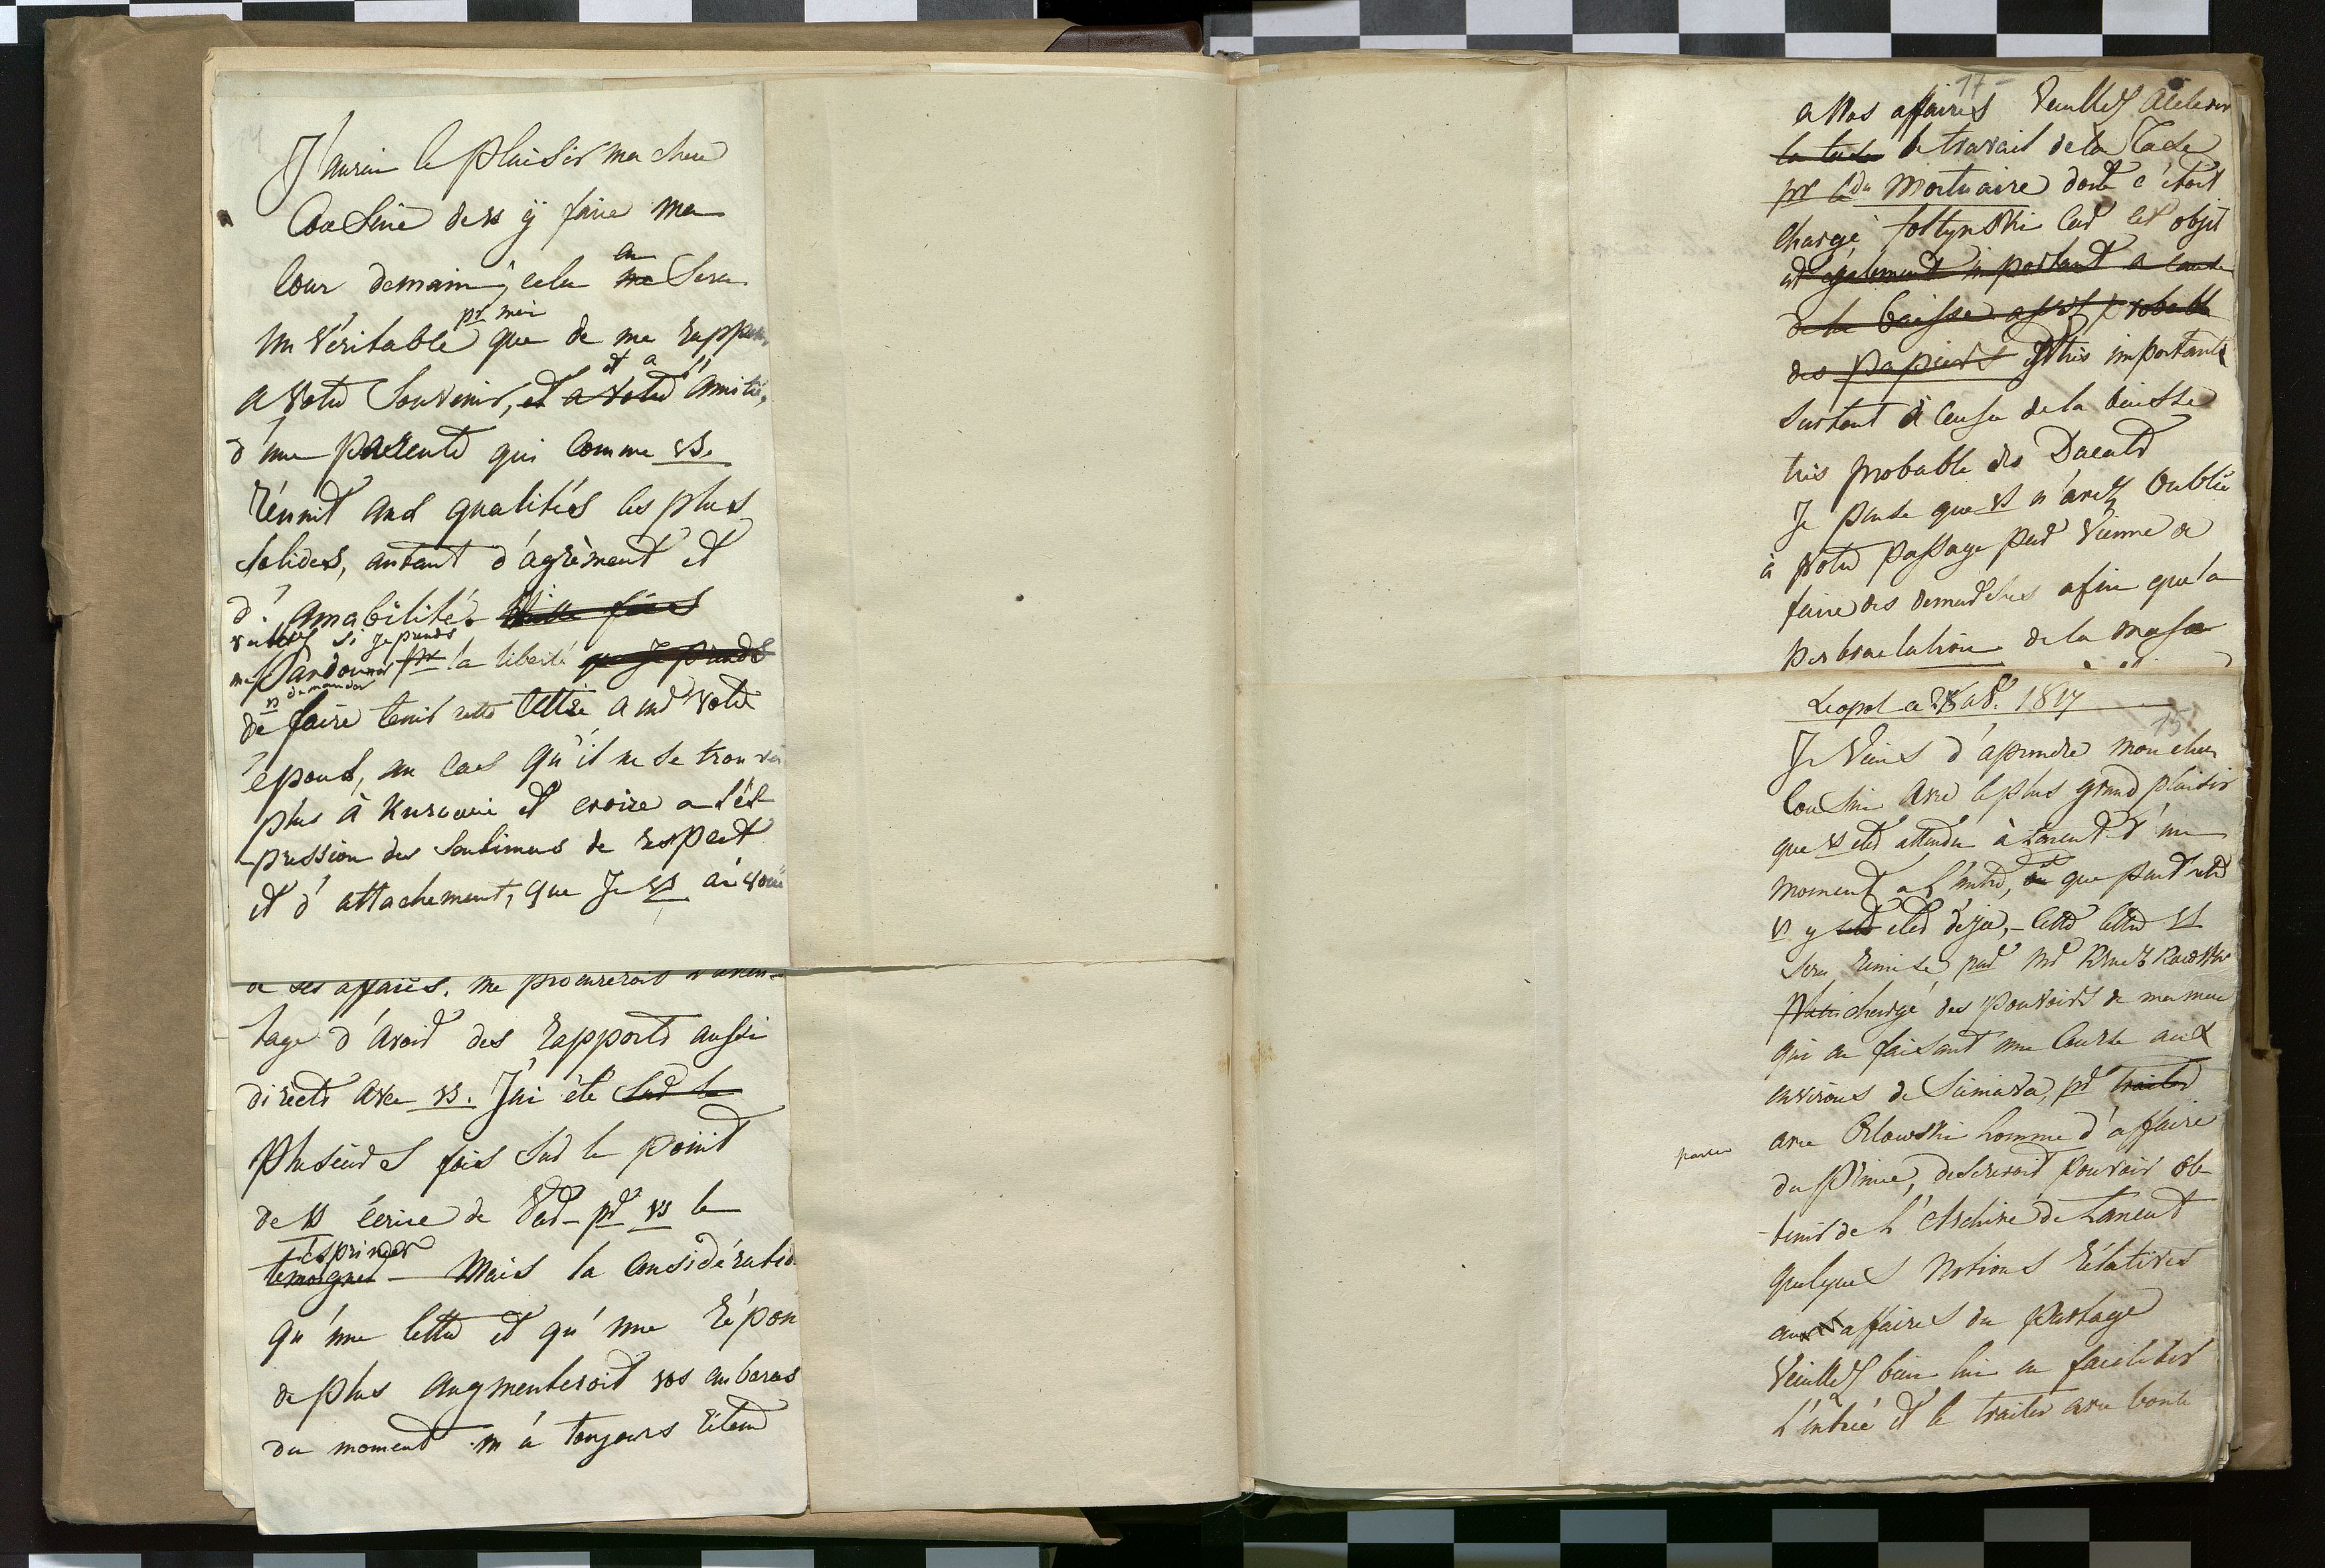 J'aurai le plaisir ma chere
Cousine de vs ÿ faire ma
Cour demain, cela me sera
en
un véritable que de me rappe
pr moi
a votre Souvenir, et a votre amitié,
et a
d'une parente qui Comme vs.
réunit aux qualités les plus
solides, autant d'agrément et
d'amabilité.
veuillez si je prends
me Pardonner pr la liberté que Je prends
vs demander
de faire tenir cette lettre a mr votre
époux, au cas qu'il ne se trouve
plus à Kurowic et croire a l'éx
pression des Sentimens de respect
et d'attachement, que Je vs ai voué
de ses affaires, me procureroit l'avan-
tage d'avoir des rapports aussi
directs avec vs. J'ai été sur le
plusieurs fois sur le point
de vs écrire de Vad- pr vs le
exprimer
temoigner - Mais la Considératio
qu'une lettre et qu'une répon
de plus augmenteroit vos embaras
du moment m'a toujours retenu
17
a Nos affaires Veuillez accelerer
la taxe le travail de la Taxe
pr le du Mortuaire dont c'étoit
chargé foltynski Car cet objet
est egalement important a cause
de la baisse assez probable
des papiers est très important
surtout à cause de la baisse
très probable des Ducats
Je pense que vs n'avez oublié
à votre passage par Vienne de
faire des demarches afin que la
pertractation de la masse
Leopol ce 28 1817
15
Je Viens d'aprendre mon cher
Cousin avec le plus grand plaisir
que vs etes attendu à Lancut d'un
moment a l'autre, ou que peut etre
et
vs y etes deja, - Cette lettre vs
sera remise par Mr
chargé des pouvoirs de ma mere
qui en faisant une Course aux
environs de Siniawa, pr traiter
parler
avec Orlowski homme d'affaire
du Prince, desireroit pouvoir ob-
tenir de l'Archive de Lancut
quelques Notions rélatives
aux affaires du partage
Veuillez bien lui en faciliter
L'entrée et le traiter avec bonté